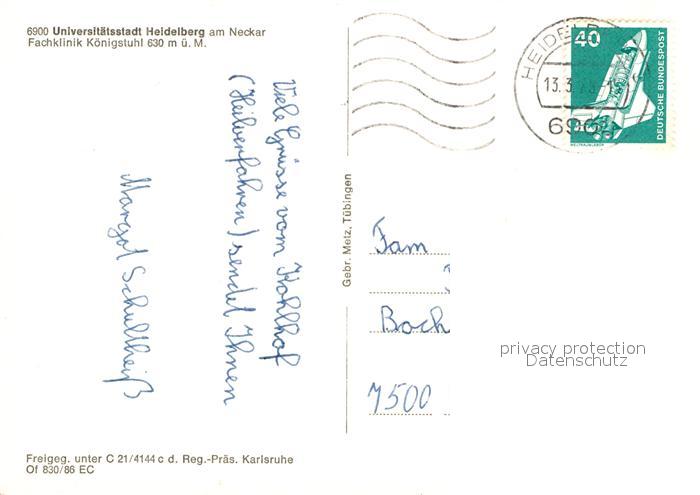 6900 Universitätsstadt Heidelberg am Neckar
Fachklinik Königstuhl 630 m ü. M.
Viele Grüsse vom Kohlhof
(Heilverfahren) sendet Ihnen
Margot Schultheiß
Gebr. Metz, Tübingen
HEIDELB
13.3.
690
40
DEUTSCHE BUNDESPOST
WELTRAUMLABOR
Fam
Boch
7500
privacy protection
Datenschutz
Freigeg. unter C 21/4144 c d. Reg.-Präs. Karlsruhe
Of 830/86 EC